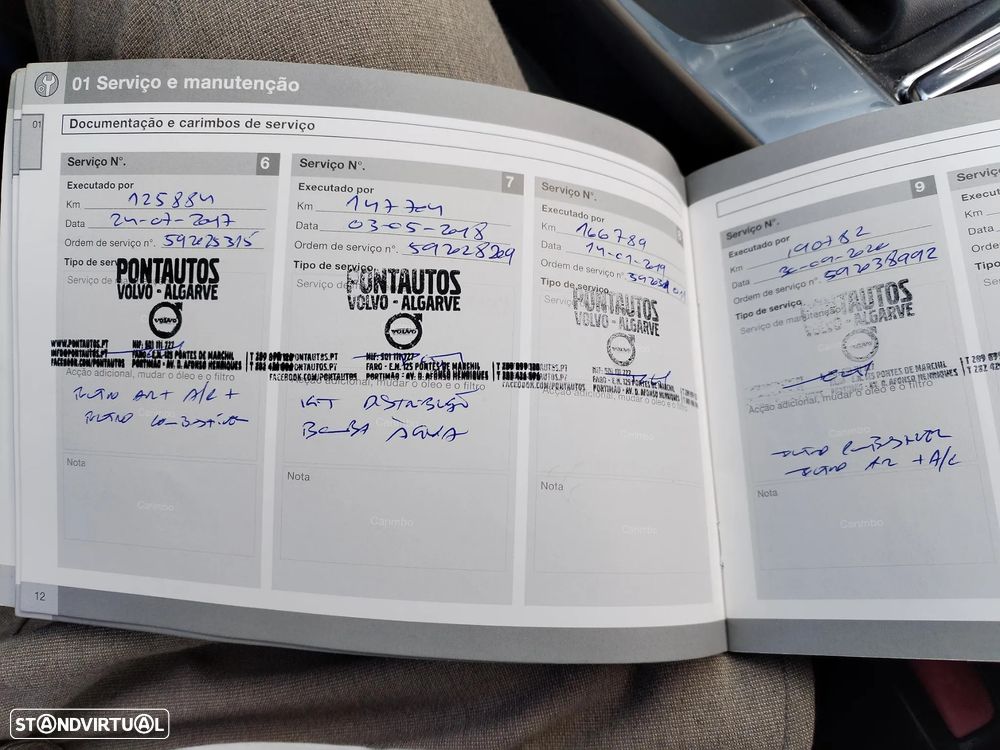 01 Serviço e manutenção
01
Documentação e carimbos de serviço
Serviço N°. 6
Executado por
Km 125884
Data 24-07-2017
Ordem de serviço n°. 592025315
Tipo de serviço
PONTAUTOS
VOLVO - ALGARVE
VOLVO
WWW.PONTAUTOS.PT
INFO@PONTAUTOS.PT
FACEBOOK.COM/PONTAUTOS
NIF: 501 111 727
FARO - E.N. 125 PÔNTES DE MARCHIL
PORTIMÃO - AV. D. AFONSO HENRIQUES
Acção adicional, mudar o óleo e o filtro
FILTRO AR + A/C +
FILTRO COMBUSTÍVEL
Nota
Carimbo
12
Serviço N°. 7
Executado por
Km 147724
Data 03-05-2018
Ordem de serviço n°. 592028209
Tipo de serviço
PONTAUTOS
VOLVO - ALGARVE
VOLVO
NIF: 501 111 727
FARO - E.N. 125 PÔNTES DE MARCHIL
FACEBOOK.COM/PONTAUTOS
PORTIMÃO - AV. D. AFONSO HENRIQUES
Acção adicional, mudar o óleo e o filtro
KIT DISTRIBUIÇÃO
BOMBA ÀGUA
Nota
Carimbo
Serviço N°. 8
Executado por
Km 166789
Data
Ordem de serviço n°
Tipo de serviço
PONTAUTOS
VOLVO - ALGARVE
FACEBOOK.COM/PONTAUTOS
FARO - E.N. 125 PÔNTES DE MARCHIL
PORTIMÃO - AV. D. AFONSO HENRIQUES
Acção adicional, mudar o óleo e o filtro
Nota
Carimbo
Serviço N°. 9
Executado por
Km 190782
Data 30-09-2020
Ordem de serviço n°. 592038992
Tipo de serviço
Serviço de manutenção
PONTAUTOS
VOLVO - ALGARVE
E.N. 125 PÔNTES DE MARCHIL
AV. D. AFONSO HENRIQUES
Acção adicional, mudar o óleo e o filtro
FILTRO COMBUSTIVEL
FILTRO AR + A/C
Nota
Carimbo
Executado
Km
Data
Tipo de
STANDVIRTUAL